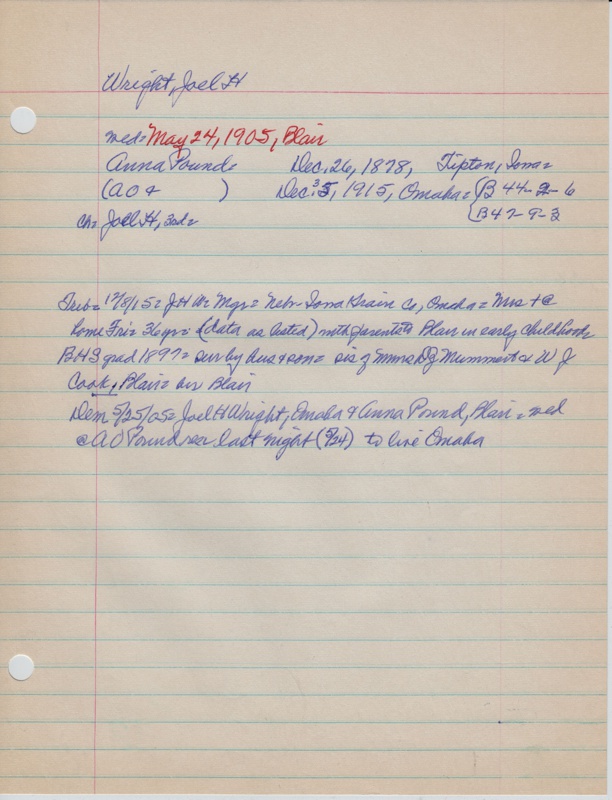 Wright, Joel H
med= May 24, 1905, Blair
Anna Pound= Dec. 26, 1878, Tipton, Iowa=
(A O & ) Dec. 3, 1915, Omaha= (B 44-2-6
ch= Joel H, 3rd= (B 47-9-3
Trib= 12/8/15= J H W= Mgr= Nebr-Iowa Grain Co, Omaha= Mrs + @
home Fri= 36 yr= (data as listed) with parents to Blair in early childhood=
BHS grad 1897= sur by hus & son= sis of Mmes D Z Mummert & W J
Cook, Blair= bur Blair
Dem 5/25/05= Joel H Wright, Omaha & Anna Pound, Blair= med
@ A O Pound res last night (5/24) to live Omaha